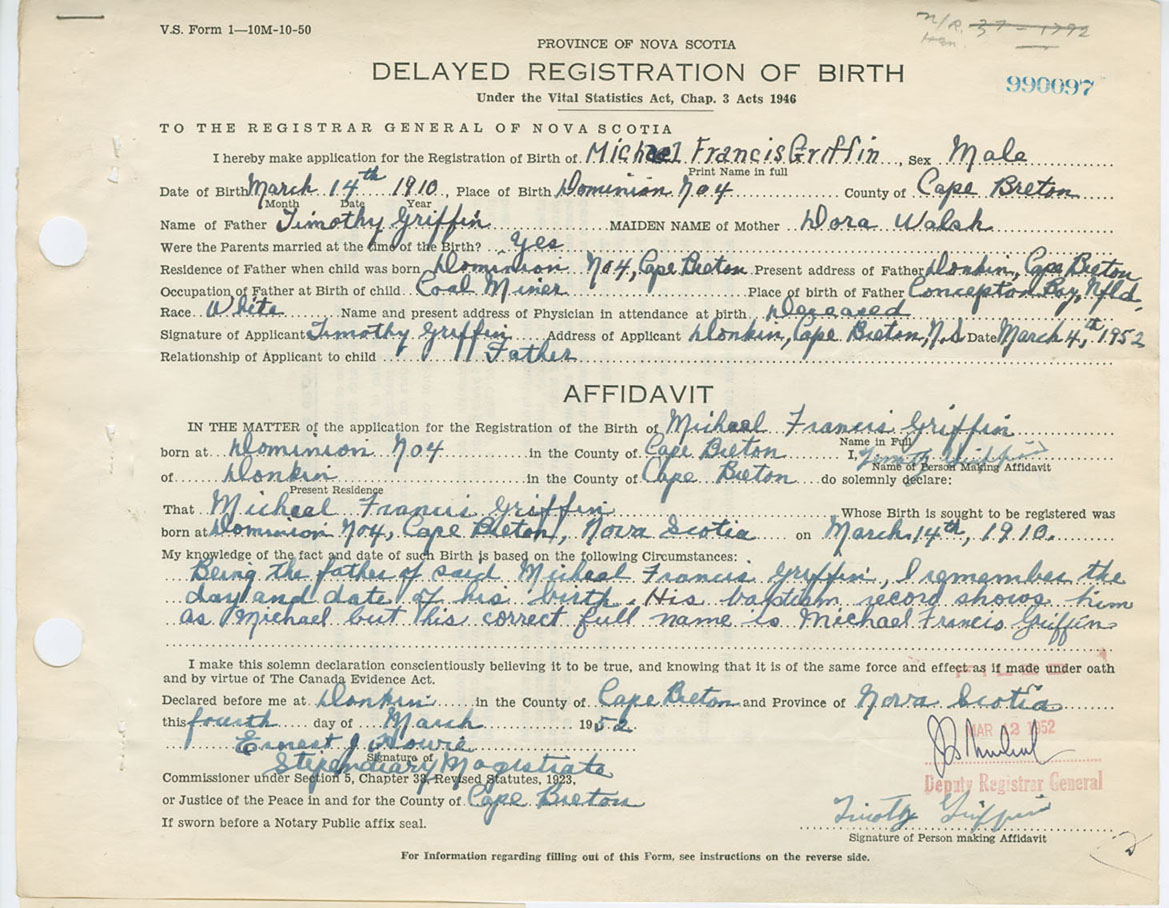 V.S. Form 1—10M-10-50
N/R. 37 — 1792
PROVINCE OF NOVA SCOTIA
DELAYED REGISTRATION OF BIRTH
990097
Under the Vital Statistics Act, Chap. 3 Acts 1946
TO THE REGISTRAR GENERAL OF NOVA SCOTIA
I hereby make application for the Registration of Birth of Michael Francis Griffin, Sex Male
Print Name in full
Date of Birth March 14th 1910, Place of Birth Dominion No 4 County of Cape Breton
Month Date Year
Name of Father Timothy Griffin MAIDEN NAME of Mother Dora Walsh
Were the Parents married at the time of the Birth? Yes
Residence of Father when child was born Dominion No 4, Cape Breton Present address of Father Donkin, Cape Breton
Occupation of Father at Birth of child Coal Miner Place of birth of Father Conception Bay, Nfld.
Race White Name and present address of Physician in attendance at birth Deceased
Signature of Applicant Timothy Griffin Address of Applicant Donkin, Cape Breton, N.S Date March 4th, 1952
Relationship of Applicant to child Father
AFFIDAVIT
IN THE MATTER of the application for the Registration of the Birth of Micheal Francis Griffin
Name in Full
born at Dominion No 4 in the County of Cape Breton I, Timoth Griffin
Name of Person Making Affidavit
of Donkin in the County of Cape Breton do solemnly declare:
Present Residence
That Micheal Francis Griffin Whose Birth is sought to be registered was
born at Dominion No 4, Cape Breton, Nova Scotia on March 14th, 1910.
My knowledge of the fact and date of such Birth is based on the following Circumstances:
Being the father of said Micheal Francis Griffin, I remember the
day and date of his birth. His baptism record shows him
as Michael but his correct full name is Michael Francis Griffin
I make this solemn declaration conscientiously believing it to be true, and knowing that it is of the same force and effect as if made under oath
and by virtue of The Canada Evidence Act.
Declared before me at Donkin in the County of Cape Breton and Province of Nova Scotia
this fourth day of March 1952
MAR 12 1952
Ernest J. Howie
Signature of
Stipendiary Magistrate
Commissioner under Section 5, Chapter 38, Revised Statutes, 1923,
Deputy Registrar General
or Justice of the Peace in and for the County of Cape Breton
Timoty Griffin
If sworn before a Notary Public affix seal.
Signature of Person making Affidavit
For Information regarding filling out of this Form, see instructions on the reverse side.